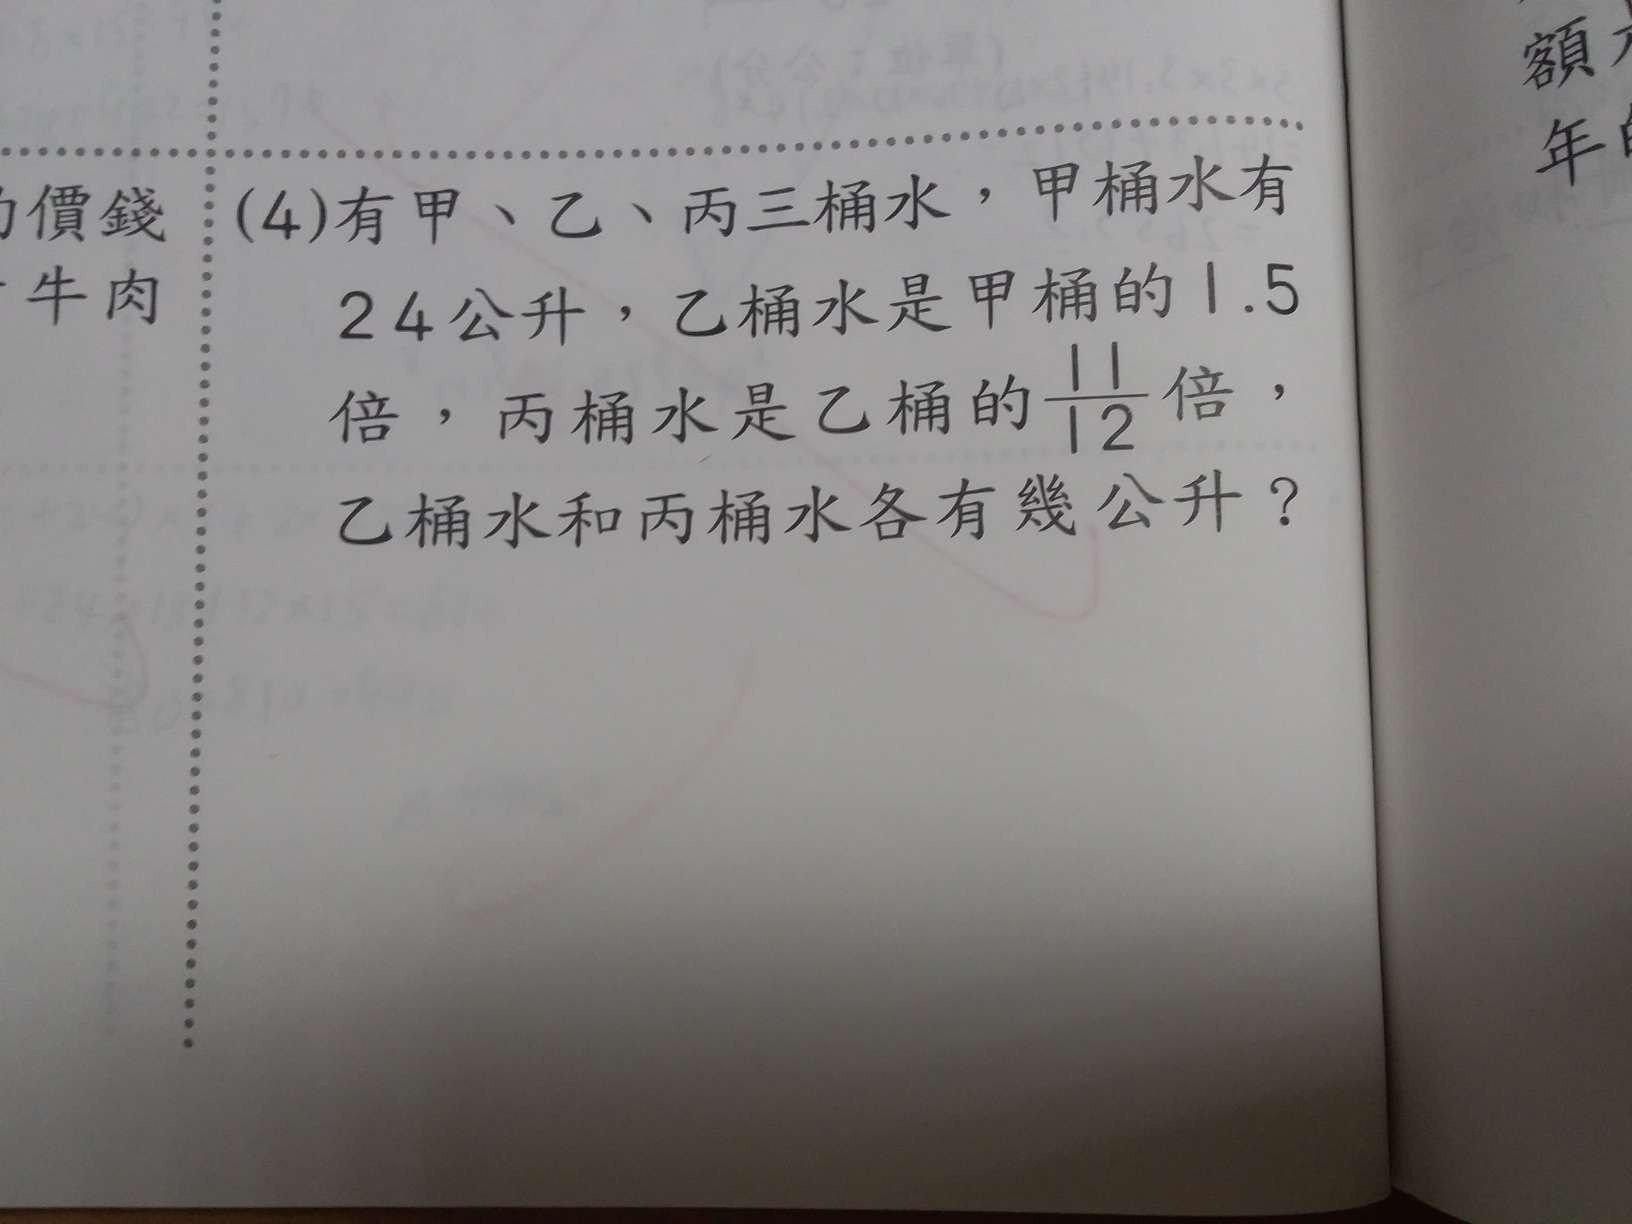 價錢
牛肉
(4)有甲、乙、丙三桶水，甲桶水有
24公升，乙桶水是甲桶的1.5
倍，丙桶水是乙桶的11/12倍，
乙桶水和丙桶水各有幾公升？
額
年